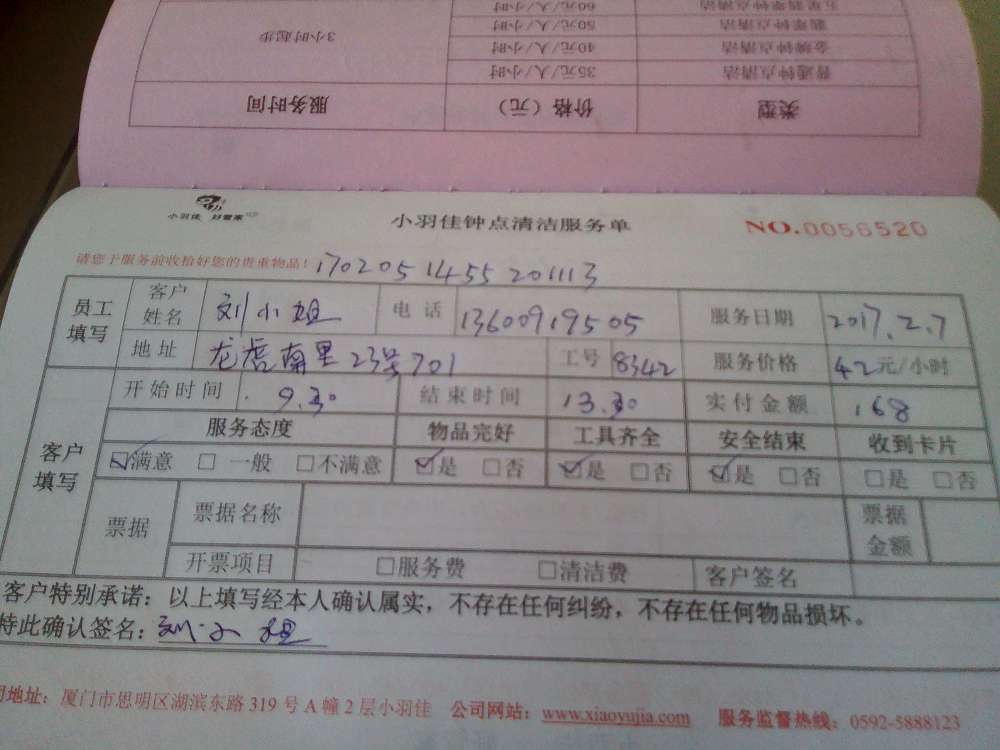 五星翡翠钟点清洁 60元/人/小时
翡翠钟点清洁 50元/人/小时
金牌钟点清洁 40元/人/小时 3小时起步
普通钟点清洁 35元/人/小时
类型 价格（元） 服务时间
小羽佳 好管家
小羽佳钟点清洁服务单 NO.0056520
请您于服务前收拾好您的贵重物品！170205 1455 201113
员工填写 客户姓名 刘小姐 电话 13600919505 服务日期 2017.2.7
地址 龙虎南里23号701 工号 8342 服务价格 42元/小时
客户填写 开始时间 9.30 结束时间 13.30 实付金额 168
服务态度 物品完好 工具齐全 安全结束 收到卡片
☑满意 □一般 □不满意 ☑是 □否 ☑是 □否 ☑是 □否 □是 □否
票据 票据名称 票据金额
开票项目 □服务费 □清洁费 客户签名
客户特别承诺：以上填写经本人确认属实，不存在任何纠纷，不存在任何物品损坏。
特此确认签名：刘小姐
司地址：厦门市思明区湖滨东路319号A幢2层小羽佳 公司网站：www.xiaoyujia.com 服务监督热线：0592-5888123